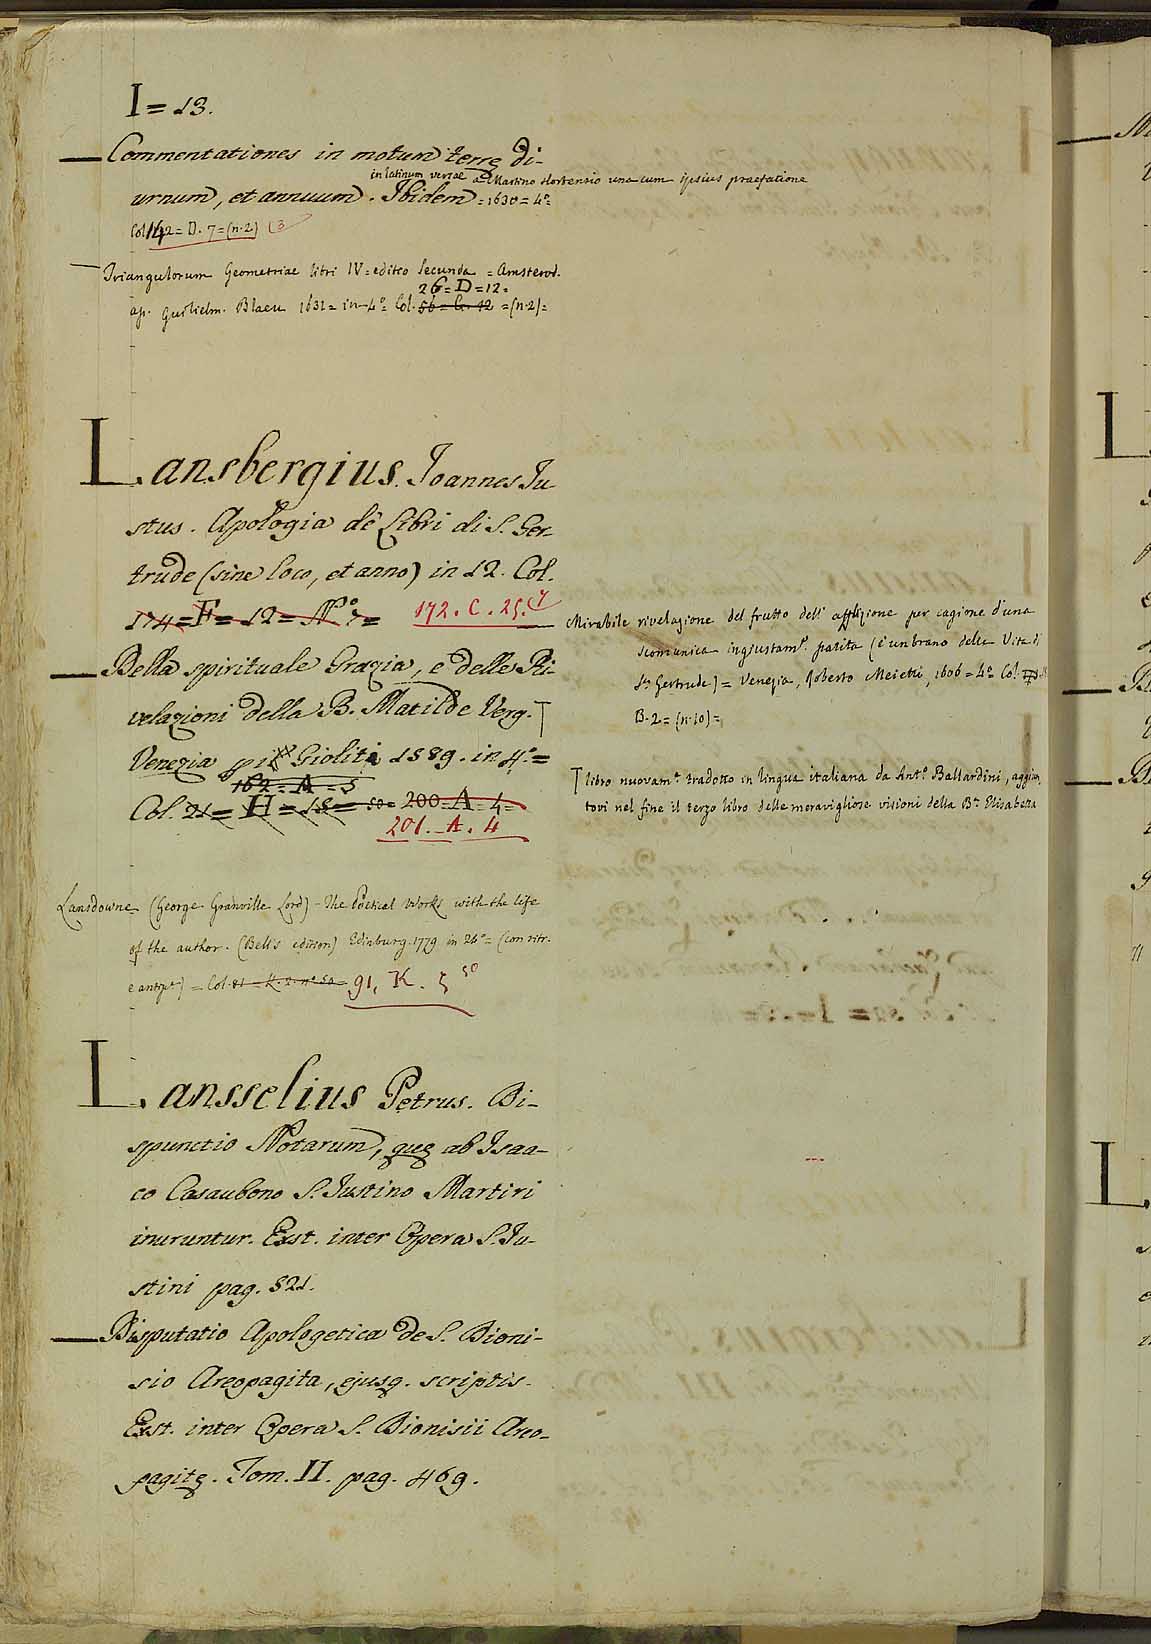 I = 13.
Commentationes in motum terrę di-
in latinum versae a Martino Hortensio una cum ipsius praefatione
urnum, et annuum. Ibidem = 1630 = 4º
Col. 142 = D. 7 = (n. 2) (3
Triangulorum Geometriae libri IV = editio secunda = Amsterod.
26 = D = 12 =
ap. Guilielm. Blaeu 1631 = in-4º = Col. 56 = G. 12 = (n. 2) =
Lansbergius. Joannes Ju-
stus. Apologia de' Libri di S. Ger-
trude (sine loco, et anno) in 12. Col.
174 = F = 12 = Nº 7 = 172. C. 25. 7
Della spirituale Grazia, e delle Ri-
velazioni della B. Matilde Verg. T
Venezia pei Gioliti 1589. in 4.º =
162 = A = 5
Col. 21 = H = 18 = 50 = 200 = A = 4 =
201. A. 4
Mirabile rivelazione del frutto dell' afflizione per cagione d'una
scomunica ingiustam.e patita (è un brano della Vita di
S.a Gertrude) = Venezia, Roberto Meietti, 1606 = 4º = Col.
B. 2 = (n. 10) =
T libro nuovam.te tradotto in lingua italiana da Ant.º Ballardini, aggiun
tovi nel fine il terzo libro delle meravigliose visioni della B.a Elisabetta
Lansdowne (George Granville Lord) - The Poetical Works with the life
of the author. (Bell's edition) Edinburg. 1779 in 24º = (con ritr.
e antip.) = Col. 81 = K. 2. nº 50 = 91. K. 5 50
Lansselius Petrus. Di-
spunctio Notarum, quę ab Isaa-
co Casaubono S. Justino Martiri
inuruntur. Exst. inter Opera S. Ju-
stini pag. 521.
Disputatio Apologetica de S. Dioni-
sio Areopagita, ejusq. scriptis.
Exst. inter Opera S. Dionisii Areo-
pagitę. Tom. II. pag. 469.